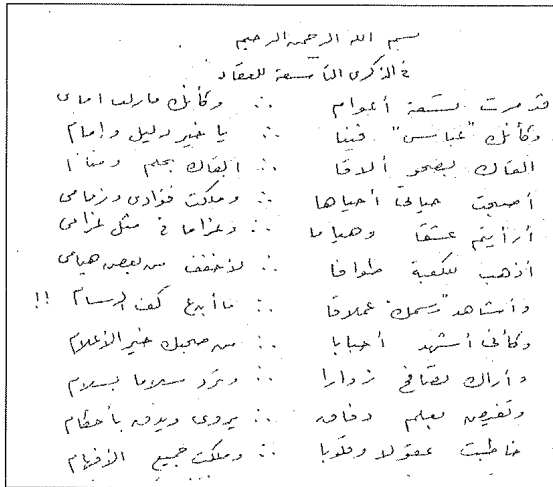 بسم الله الرحمن الرحيم
في الذكرى التاسعة للعقاد
قد مرت تسعة أعوام ∴ وكأنك مازلت امامى
وكأنك "عباس" فينا ∴ يا خير دليل وإمام
القاك بصحو ألاقا ∴ القاك بحلم ومنا
أصبحت حياتى أحياها ∴ وملكت فؤادى وزمامى
أرأيتم عشقا وهياما ∴ وغراما فى مثل غرامى
أذهب للكعبة طوافا ∴ لأخفف من بعض هيامى
وأشاهد رسمك عملاقا ∴ ما أبدع كف الرسام !!
وكأنى أشهد أحبابا ∴ من صحبك خير الأعلام
وأراك تصافح زوارا ∴ وترد سلاما بسلام
وتفيض بعلم دفاق ∴ يروى ويدق بأحكام
خاطبت عقولا وقلوبا ∴ وملكت جميع الأفهام